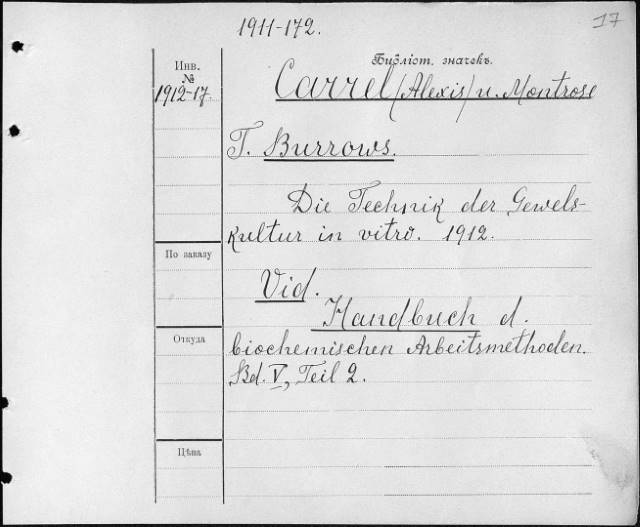 1911-172.
17
Инв.
№
1912-17.
Библіот. значекъ.
Carrel (Alexis) u. Montrose
T. Burrows.
Die Technik der Gewels-
kultur in vitro. 1912.
По заказу
Vid.
Handbuch d.
Откуда
biochemischen Arbeitsmethoden.
Bd. V, Teil 2.
Цѣна